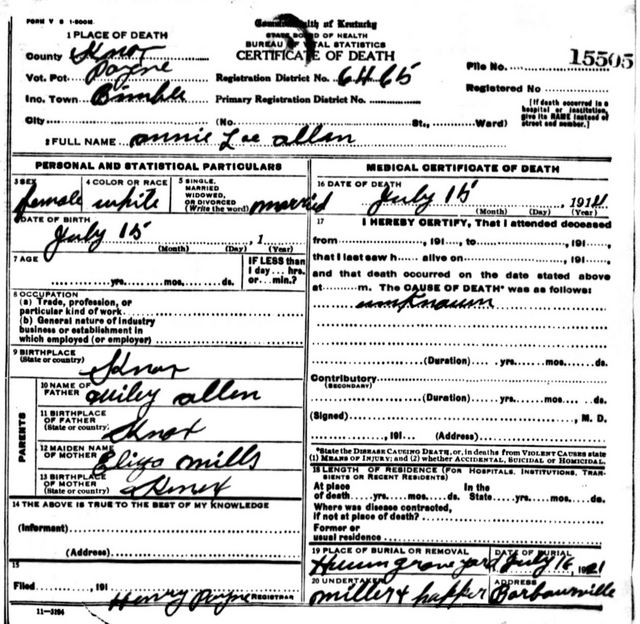 FORM V S 1-500M
Commonwealth of Kentucky
STATE BOARD OF HEALTH
BUREAU OF VITAL STATISTICS
CERTIFICATE OF DEATH
1 PLACE OF DEATH
County Knox
Vot. Pct. Payne
Registration District No. 6465
File No. 15505
Inc. Town Bimble
Primary Registration District No.
Registered No
City (No. St., Ward)
[If death occurred in a hospital or institution, give its NAME instead of street and number.]
2 FULL NAME annie Lee allen
PERSONAL AND STATISTICAL PARTICULARS
3 SEX female
4 COLOR OR RACE white
5 SINGLE, MARRIED WIDOWED, OR DIVORCED (Write the word) married
DATE OF BIRTH July 15, 1
(Month) (Day) (Year)
7 AGE yrs. mos. ds.
IF LESS than 1 day... hrs. or... min.?
8 OCCUPATION
(a) Trade, profession, or particular kind of work
(b) General nature of industry business or establishment in which employed (or employer)
9 BIRTHPLACE (State or country) Knox
PARENTS
10 NAME OF FATHER allen
11 BIRTHPLACE OF FATHER (State or country) Knox
12 MAIDEN NAME OF MOTHER Eliza mills
13 BIRTHPLACE OF MOTHER (State or country) Knox
14 THE ABOVE IS TRUE TO THE BEST OF MY KNOWLEDGE
(Informant)
(Address)
15
Filed, 191 Henry Payne REGISTRAR
11-3184
MEDICAL CERTIFICATE OF DEATH
16 DATE OF DEATH July 15, 1911
(Month) (Day) (Year)
17 I HEREBY CERTIFY, That I attended deceased
from, 191, to, 191,
that I last saw h alive on, 191,
and that death occurred on the date stated above
at m. The CAUSE OF DEATH* was as follows:
unknown
(Duration) yrs. mos. ds.
Contributory (SECONDARY)
(Duration) yrs. mos. ds.
(Signed), M. D.
, 191 (Address)
*State the DISEASE CAUSING DEATH, or, in deaths from VIOLENT CAUSES state
(1) MEANS OF INJURY; and (2) whether ACCIDENTAL, SUICIDAL or HOMICIDAL.
18 LENGTH OF RESIDENCE (FOR HOSPITALS, INSTITUTIONS, TRANSIENTS OR RECENT RESIDENTS)
At place of death yrs. mos. ds. In the State yrs. mos. ds.
Where was disease contracted, if not at place of death?
Former or usual residence
19 PLACE OF BURIAL OR REMOVAL grave yard
DATE OF BURIAL July 16, 1921
20 UNDERTAKER miller &
ADDRESS Barbourville